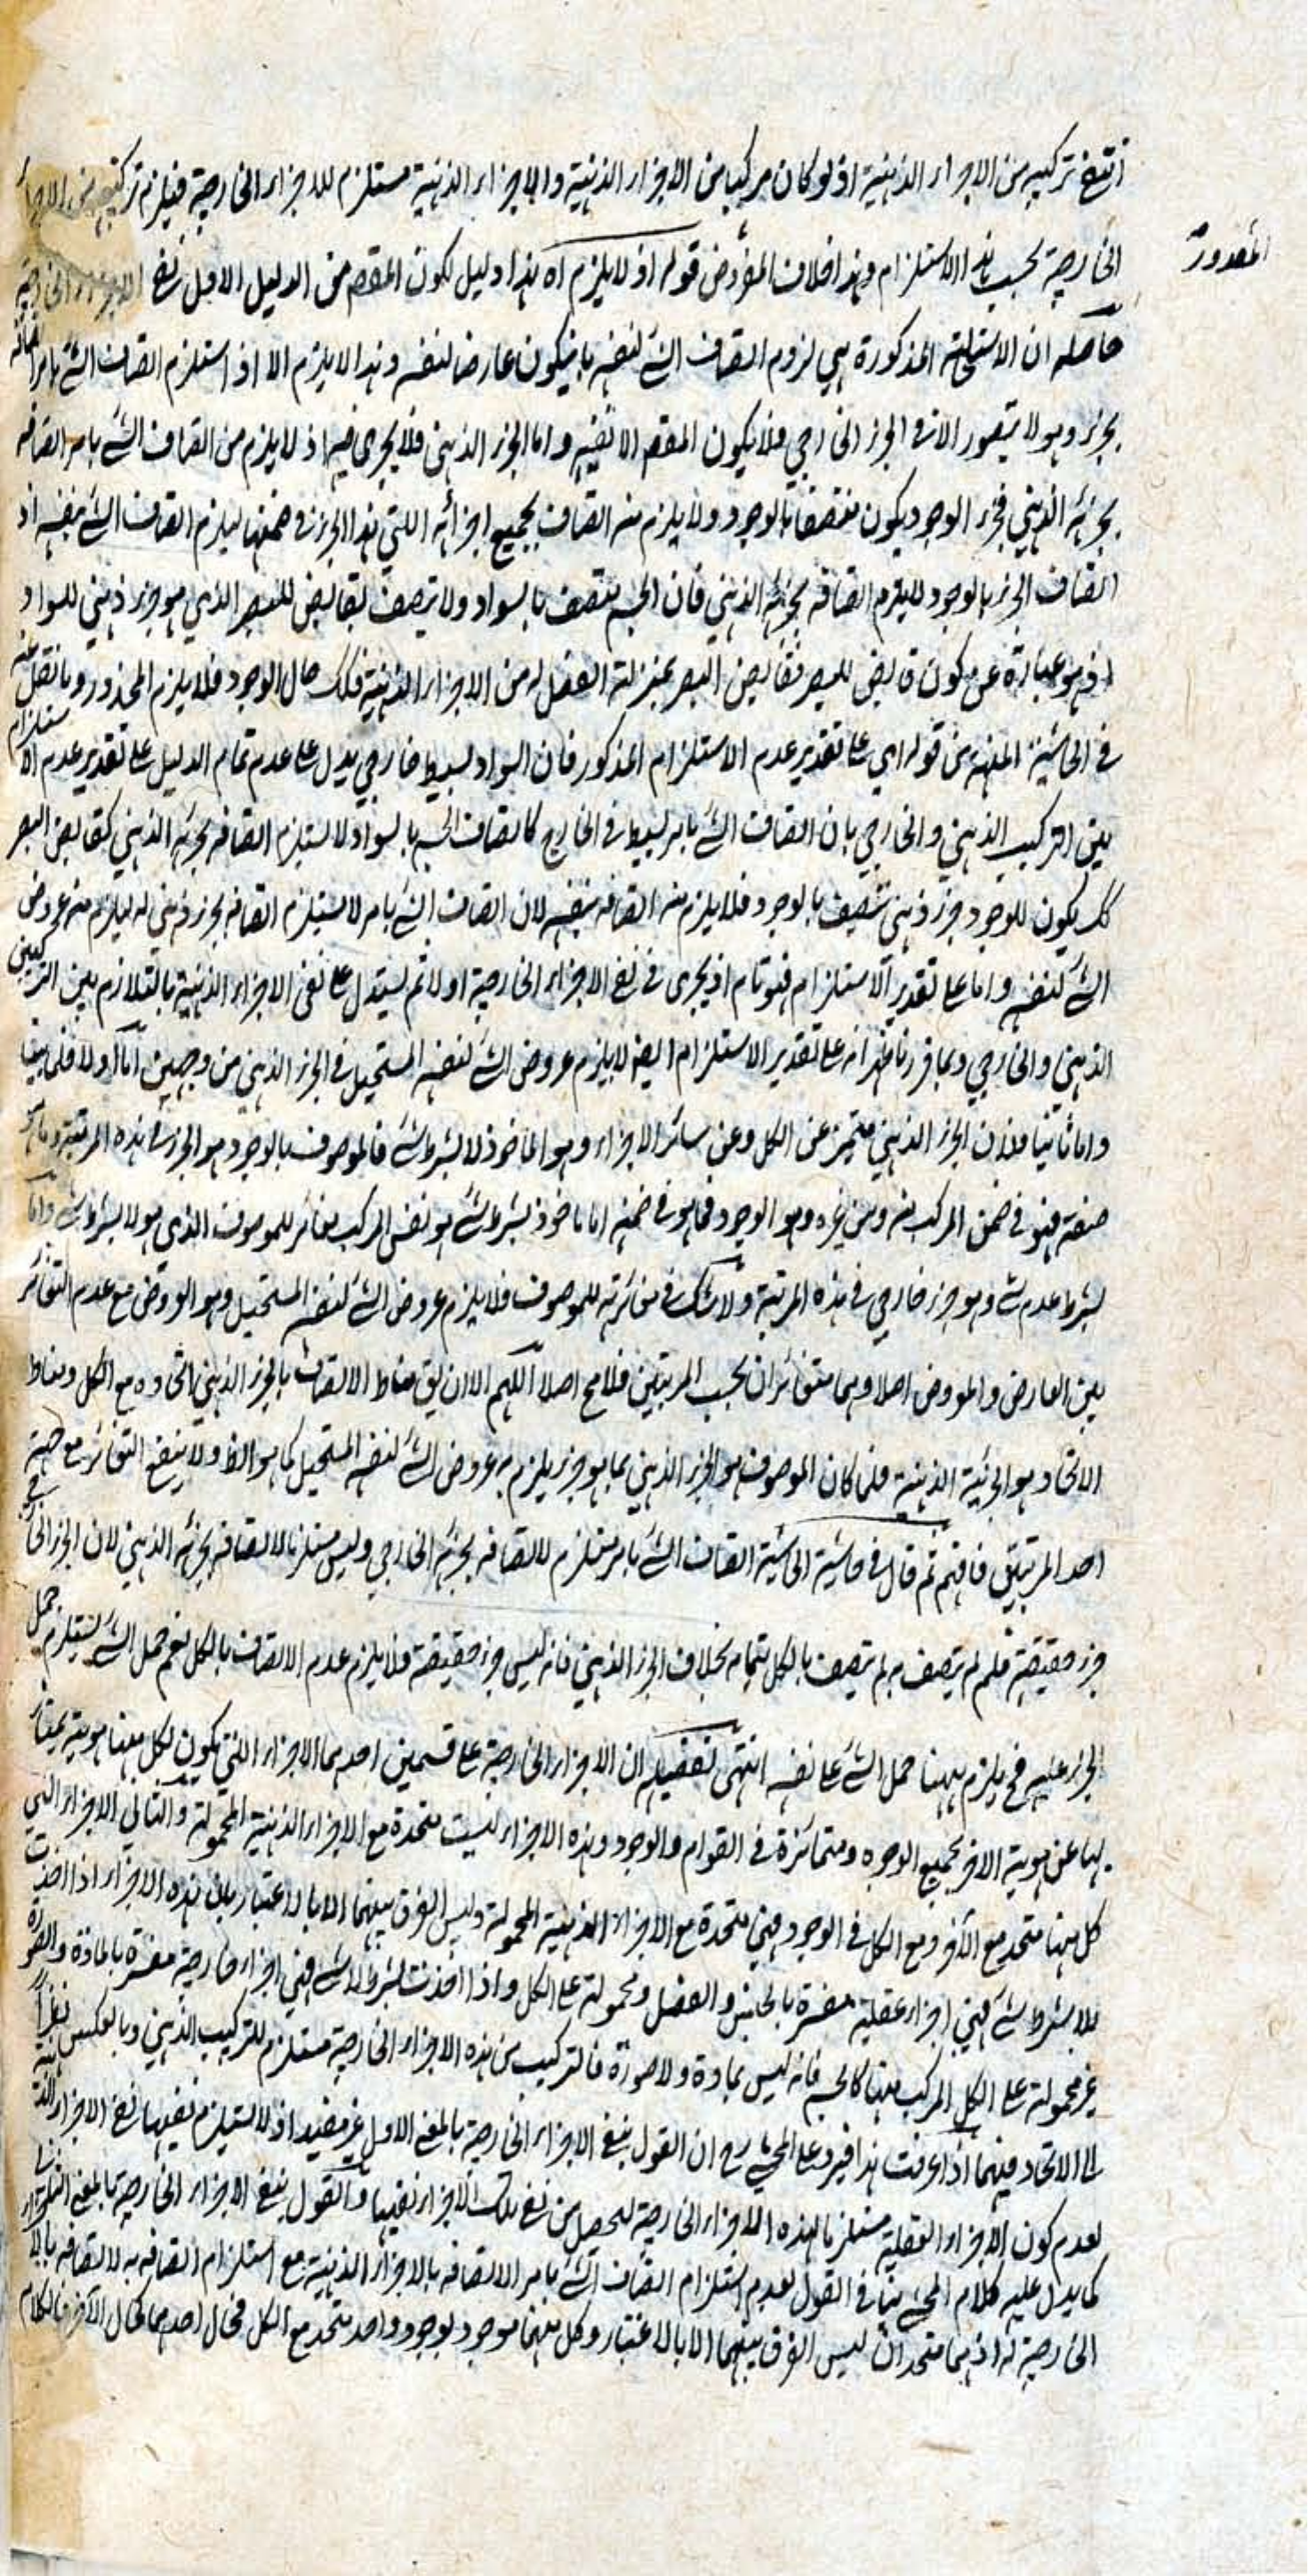 انتفى تركيبه من الاجزاء الذهنية اذ لو كان مركبا من الاجزاء الذهنية والاجزاء الذهنية مستلزم للاجزاء الخارجية فيلزم تركيبه من الاجزاء
الخارجية بحسب هذا الاستلزام وهذا خلاف المفروض قوله اذ لا يلزم اه هذا دليل لكون المقصود من الدليل الاول نفي الاجزاء الخارجية
المقدورة
حاصله ان الاستحالة المذكورة هي لزوم اتصاف الشئ بنفسه بان يكون عارضا لنفسه وهذا لا يلزم الا اذ استلزم اتصاف الشئ بامر اتصافه
بجزئه وهو لا يتصور الا في الجزء الخارجي فلا يكون المقصم الا نفيه واما الجزء الذهني فلا يجرى فيه اذ لا يلزم من اتصاف الشئ بامر اتصافه
بجزئه الذهني فجزء الوجود يكون متصفا بالوجود ولا يلزم منه اتصاف بجميع اجزائه اللتي هذا الجزء في ضمنها ليلزم اتصاف الشئ بنفسه اذ
اتصاف الجزء بالوجود لا يلزم اتصافه بجزئه الذهني فان الجسم يتصف بالسواد ولا يتصف بقابض للبصر الذي هو جزء ذهني للسواد
اذ هو عبارة عن كون قابض للبصر فقابض البصر بمنزلة الفصل له من الاجزاء الذهنية فكك حال الوجود فلا يلزم المحذور وما نقل عنه
في الحاشية المنهية من قوله اي على تقدير عدم الاستلزام المذكور فان السواد بسيط خارجي يدل على عدم تمام الدليل على تقدير عدم الاستلزام
بين التركيب الذهني والخارجي بان اتصاف الشئ بامر بسيط في الخارج كاتصاف الجسم بالسواد لا يستلزم اتصافه بجزئه الذهني كقابض البصر
كك يكون للوجود جزء ذهني متصف بالوجود فلا يلزم منه اتصافه بنفسه لان اتصاف الشئ بامر لا يستلزم اتصافه بجزء ذهني له ليلزم منه عروض
الشئ لنفسه واما على تقدير الاستلزام فهو تام اذ يجرى في نفي الاجزاء الخارجية اولا ثم يستدل على نفي الاجزاء الذهنية بالتلازم بين التركيبين
الذهني والخارجي وبما قررنا ظهر انه على تقدير الاستلزام ايضا لا يلزم عروض الشئ لنفسه المستحيل في الجزء الذهني من وجهين اما اولا فلما بينا
واما ثانيا فلان الجزء الذهني متميز عن الكل وعن سائر الاجزاء وهو الماخوذ لا بشرط شئ فالموصوف بالوجود هو الجزء في هذه المرتبة وما هو
صفته فهو في ضمن المركب منه ومن غيره وهو الوجود فما هو في ضمنه اما ماخوذ بشرط شئ هو نفس المركب مغائر للموصوف الذي هو لا بشرط شئ واما
بشرط عدم شئ وهو جزء خارجي في هذه المرتبة ولا شك في مغائرته للموصوف فلا يلزم عروض الشئ لنفسه المستحيل وهو العروض مع عدم التغائر
بين العارض والمعروض اصلا وهما متغائران بحسب المرتبتين فلا مح اصلا اللهم الا ان يق مناط الاتصاف بالجزء الذهني اتحاده مع الكل ومناط
الاتحاد هو الجزئية الذهنية فلما كان الموصوف هو الجزء الذهني بما هو جزء يلزم به عروض الشئ لنفسه المستحيل كما هو الظ ولا ينفع التغائر مع حيثية
احد المرتبتين فافهم ثم قال في حاشية الحاشية اتصاف الشئ بامر مستلزم لاتصافه بجزئه الخارجي وليس مستلزما لاتصافه بجزئه الذهني لان الجزء الخارجي
جزء حقيقة فلم لم يتصف به لم يتصف بالكل بتمامه بخلاف الجزء الذهني فانه ليس جزء حقيقة فلا يلزم عدم الاتصاف بالكل نعم حمل الشئ يستلزم حمل
الجزء عليه فح يلزم ههنا حمل الشئ على نفسه انتهى تفصيله ان الاجزاء الخارجية على قسمين احدهما الاجزاء اللتي يكون لكل منها هوية يمتاز
بها عن هوية الاخر بجميع الوجوه ومتمائزة في القوام والوجود وهذه الاجزاء ليست متحدة مع الاجزاء الذهنية المحمولة والثاني الاجزاء التي
كل منها متحد مع الآخر ومع الكل في الوجود فهي متحدة مع الاجزاء الذهنية المحمولة وليس الفرق بينهما الا بالاعتبار بان هذه الاجزاء اذا اخذت
بلا بشرط شئ فهي اجزاء عقلية مفسرة بالجنس والفصل ومحمولة على الكل واذا اخذت بشرط لا شئ فهي اجزاء خارجية مفسرة بالمادة والصورة
غير محمولة على الكل المركب منها كالجسم فانه ليس بمادة ولا صورة فالتركيب من هذه الاجزاء الخارجية مستلزم للتركيب الذهني وبالعكس نظرا
الى الاتحاد فيهما اذا عرفت هذا فيرد على المحشي رح ان القول بنفي الاجزاء الخارجية بالمعنى الاول غير مفيد اذ لا يستلزم نفيها نفي الاجزاء الذهنية
لعدم كون الاجزاء العقلية مستلزما لهذه الاجزاء الخارجية ليحصل من نفي تلك الاجزاء نفيها والقول بنفي الاجزاء الخارجية بالمعنى الثاني
كما يدل عليه كلام المحشي ينافي القول بعدم استلزام اتصاف الشئ بامر لاتصافه بالاجزاء الذهنية مع استلزام اتصافه به لاتصافه بالاجزاء
الخارجية له اذ هما متحدان ليس الفرق بينهما الا بالاعتبار وكل منهما موجود بوجود واحد متحد مع الكل فحال احدهما كحال الآخر فالكلام